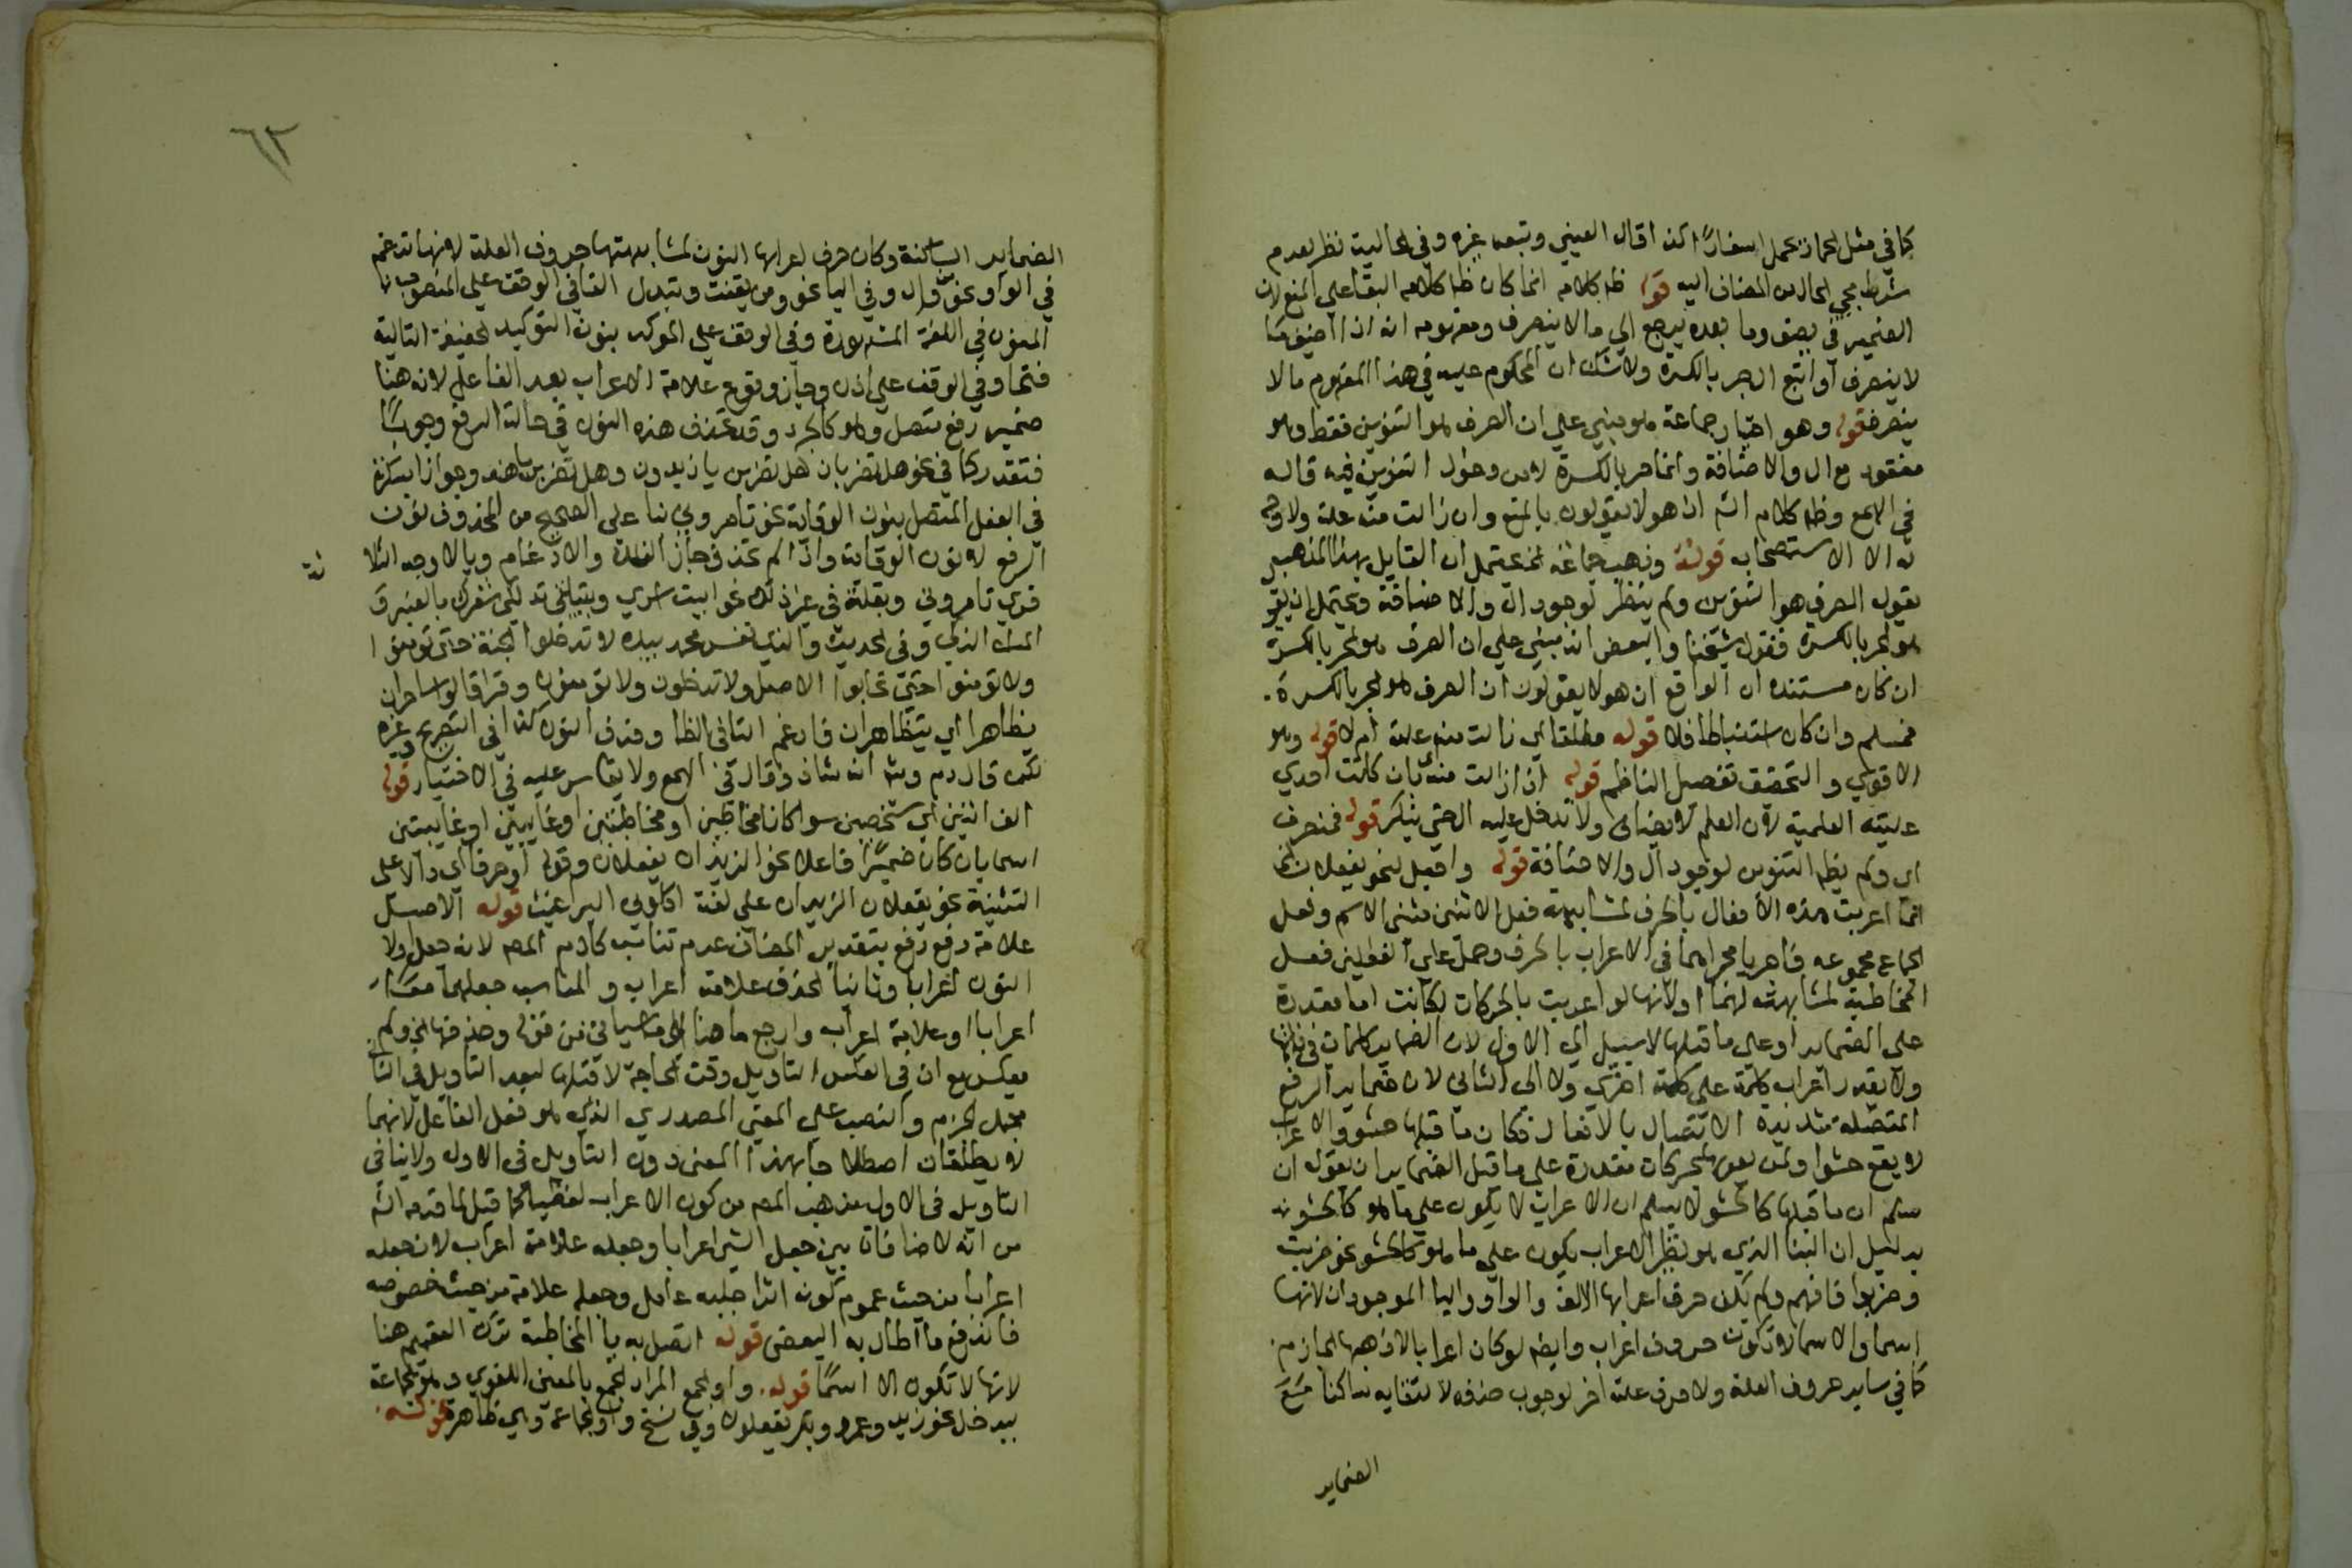 كما في مثل الحمار يحمل اسفارًا كذا قال العيني وتبعه غيره وفي الحالية نظر لعدم
شرط مجي الحال من المضاف اليه قوله ظ كلامه انما كان ظ كلامه البقا على المنع لان
الضمير في بصق وما بعده يرجع الي ما لا ينصرف ومفهومه انه اذا اضيف ما
لا ينصرف او اتبع ال جر بالكسرة ولا شك ان المحكوم عليه في هذا المفهوم ما لا
ينصرف قوله وهو اختيار جماعة هو مبني علي ان الصرف هو التنوين فقط وهو
مفقود مع ال والاضافة وانما جر بالكسرة لامن دخول التنوين فيه قاله
في الهمع وظ كلام الشم ان هولا يقولون بالمنع وان زالت منه علة ولا وجه
له الا الاستصحاب قوله وذهب جماعة الخ يحتمل ان القايل بهذا المذهب
يقول الصرف هو التنوين ولم يظهر لوجود ال والاضافة ويحتمل ان يقول
هو الجر بالكسرة فقول شيخنا والبعض انه مبني على ان الصرف هو الجر بالكسرة
ان كان مستنده ان الواقع ان هولا يقولون ان الصرف هو الجر بالكسرة.
فمسلم وان كان استنباطا فلا قوله مطلقا اي زالت منه علة ام لا قوله وهو
الاقوي والتحقيق تفصيل الناظم قوله اذا زالت منه بان كانت احدي
علتيه العلمية لان العلم لا يضاف ولا تدخل عليه ال حتي ينكر قوله فمنصرف
اي ولم يظهر التنوين لوجود ال والاضافة قوله واجعل لنحو يفعلان النونا
انما اعربت هذه الافعال بالحرف لمشابهة فعل الاثنين مثنى الاسم وفعل
الجماع مجموعه فاجريا مجراهما في الاعراب بالحرف وحمل على الفعلين فعل
المخاطبة لمشابهته لهما اولانها لو اعربت بالحركات لكانت اما مقدرة
على الضماير او علي ما قبلها لاسبيل الي الاول لان الضماير كلمات في ذاتها
ولا يقدر اعراب كلمة علي كلمة اخري ولا الى الثاني لان ضماير الرفع
المتصلة شديدة الاتصال بالافعال فكان ما قبلها حشو والاعراب
لا يقع حشوا ولمن يعرب بحركات مقدرة على ما قبل الضماير ان يقول ان
سلم ان ما قبلها كالحشو لا يسلم ان الاعراب لا يكون علي ما هو كالحشو نه
بدليل ان البنا الذي هو نظير الاعراب يكون علي ما هو كالحشو نحو ضربت
وضربوا فافهم ولم يكن حرف اعرابها الالف والواو واليا الموجودان لانها
اسما والاسما لا تكون حروف اعراب وايضا لو كان اعرابا لاذهبها الجازم
كما في ساير حروف العلة ولا حرف علة اخر لوجوب حذفه لالتقايه ساكنا مع
الضماير
٦٣
الضماير الساكنة وكان حرف اعرابها النون لمشابهتها حروف العلة لانها تدغم
في الواو نحو من وال وفي اليا نحو ومن يقنت وتبدل الفا في الوقف علي المنصوب
المنون في اللغة المشهورة وفي الوقف علي الموكد بنون التوكيد الخفيفة التالية
فتحا وفي الوقف علي اذن وجاز وقوع علامة الاعراب بعد الفاعل لانه هنا
ضمير رفع متصل وهو كالجزء وقد تحذف هذه النون في حالة الرفع وجوبًا
فتقدر كما في نحو هل تضربان هل تضربن يا زيدون وهل تضربن يا هند وجوازا بكثرة
في الفعل المتصل بنون الوقاية نحو تامروني بنا على الصحيح من المحذوف نون
الرفع لا نون الوقاية واذا لم تحذف جاز الفك والادغام وبالاوجه الثلا
ثة
قري تامروني وبقلة في غير ذلك نحو ابيت اسري وتبيتي تدلكي شعرك بالعنبر و
المسك الذكي وفي الحديث والذي نفس محمد بيده لا تدخلوا الجنة حتى تومنوا
ولا تومنوا حتي تحابوا الاصل ولا تدخلون ولا تومنون وقرا قالوا ساحران
يظاهرا اي يتظاهران فادغم التا في الظا وحذف النون كذا في التصريح وغيره
لكن قال دم وشم انه شاذ وقال في الهمع ولا يقاس عليه في الاختيار قوله
الف اثنين اي شخصين سوا كانا مخاطبين او مخاطبتين او غايبين او غايبتين
اسما بان كان ضميرًا فاعلا نحو الزيدان يفعلان وقوله او حرفا اي دالا على
التثنية نحو يفعلان الزيدان على لغة اكلوني البراغيث قوله الاصل
علامة رفع رفع بتقدير المضاف عدم تناسب كلام المصم لانه جعل اولا
النون اعرابا وثانيا الحذف علامة اعراب والمناسب جعلهما معا
اعرابا او علامة اعراب وارجع ما هنا الي ما سياتي في قوله وحذفها للجزم ولم
يعكس مع ان في العكس التاويل وقت الحاجة لا قبلها لبعد التاويل في الثا
محمل الجزم والنصب علي المعني المصدري الذي هو فعل الفاعل لانهما
لا يطلقان اصطلاحا بهذا المعنى دون التاويل في الاول ولا ينافي
التاويل في الاول مذهب المصم من كون الاعراب لفظيا كما قيل لما قدمه الشم
من انه لا منافات بين جعل الشي اعرابا وجعله علامة اعراب لان جعله
اعرابا من حيث عموم كونه اثرا جلبه عامل وجعله علامة من حيث خصوصه
فاندفع ما اطال به البعض قوله اتصل به يا المخاطبة ترك التعميم هنا
لانها لا تكون الا اسمًا قوله. واو الجمع المراد الجمع بالمعني اللغوي وهو الجماعة
ليدخل نحو زيد وعمرو وبكر يفعلون وفي نسخ واو الجماعة وهي ظاهرة قوله